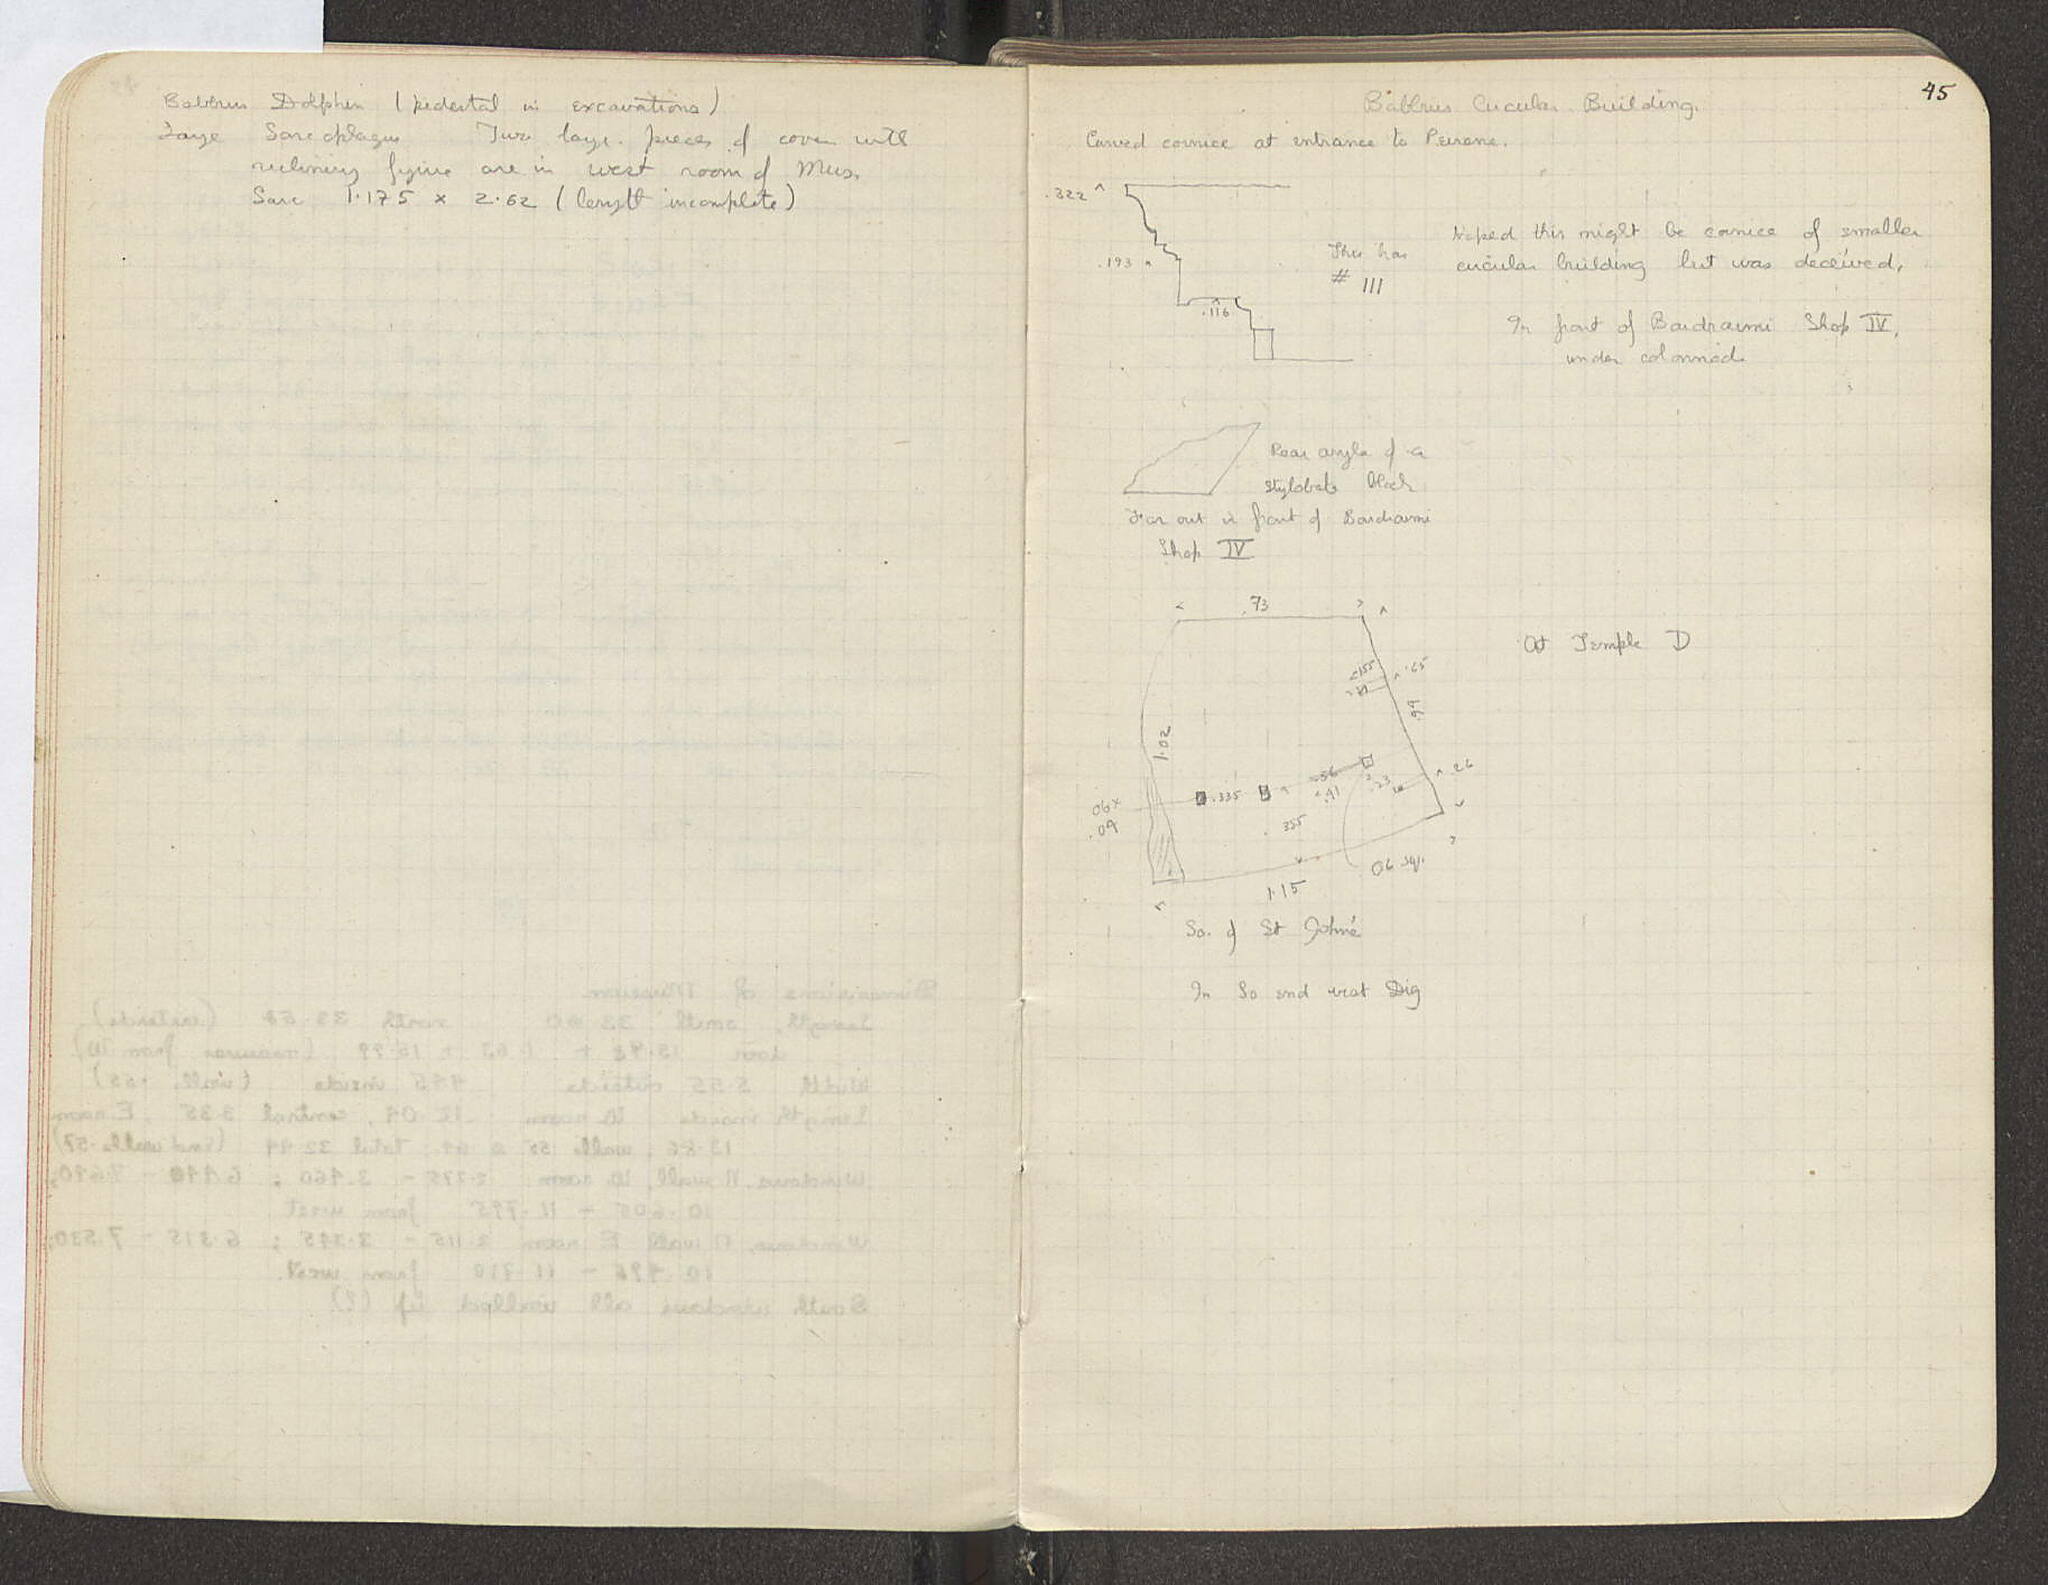 Babbius Dolphin (pedestal in excavations)
Large Sarcophagus Two large pieces of cover with
reclining figure are in west room of Mus.
Sarc 1.175 x 2.62 (length incomplete)
45
Babbius Circular Building.
Curved cornice at entrance to Peirene.
.322
.193
.116
This has
# 111
Hoped this might be cornice of smaller
circular building but was deceived.
In front of Boudroumi Shop IV,
under colonnade
Rear angle of a
stylobate block
Far out in front of Boudroumi
Shop IV
.73
At Temple D
.155
.65
.99
1.02
.26
.56
.41
.23
.335
.355
.06 x
.09
.06 sq.
1.15
So. of St John's
In So end west Dig